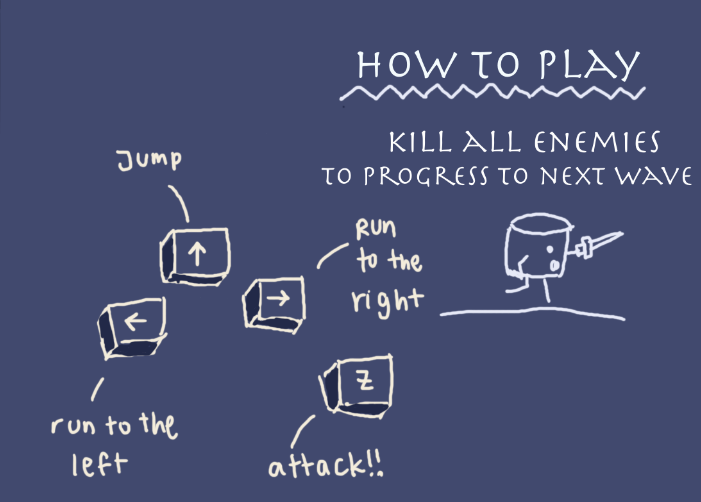 HOW TO PLAY
KILL ALL ENEMIES
TO PROGRESS TO NEXT WAVE
Jump
↑
Run
to the
right
→
←
run to the
left
Z
attack!!